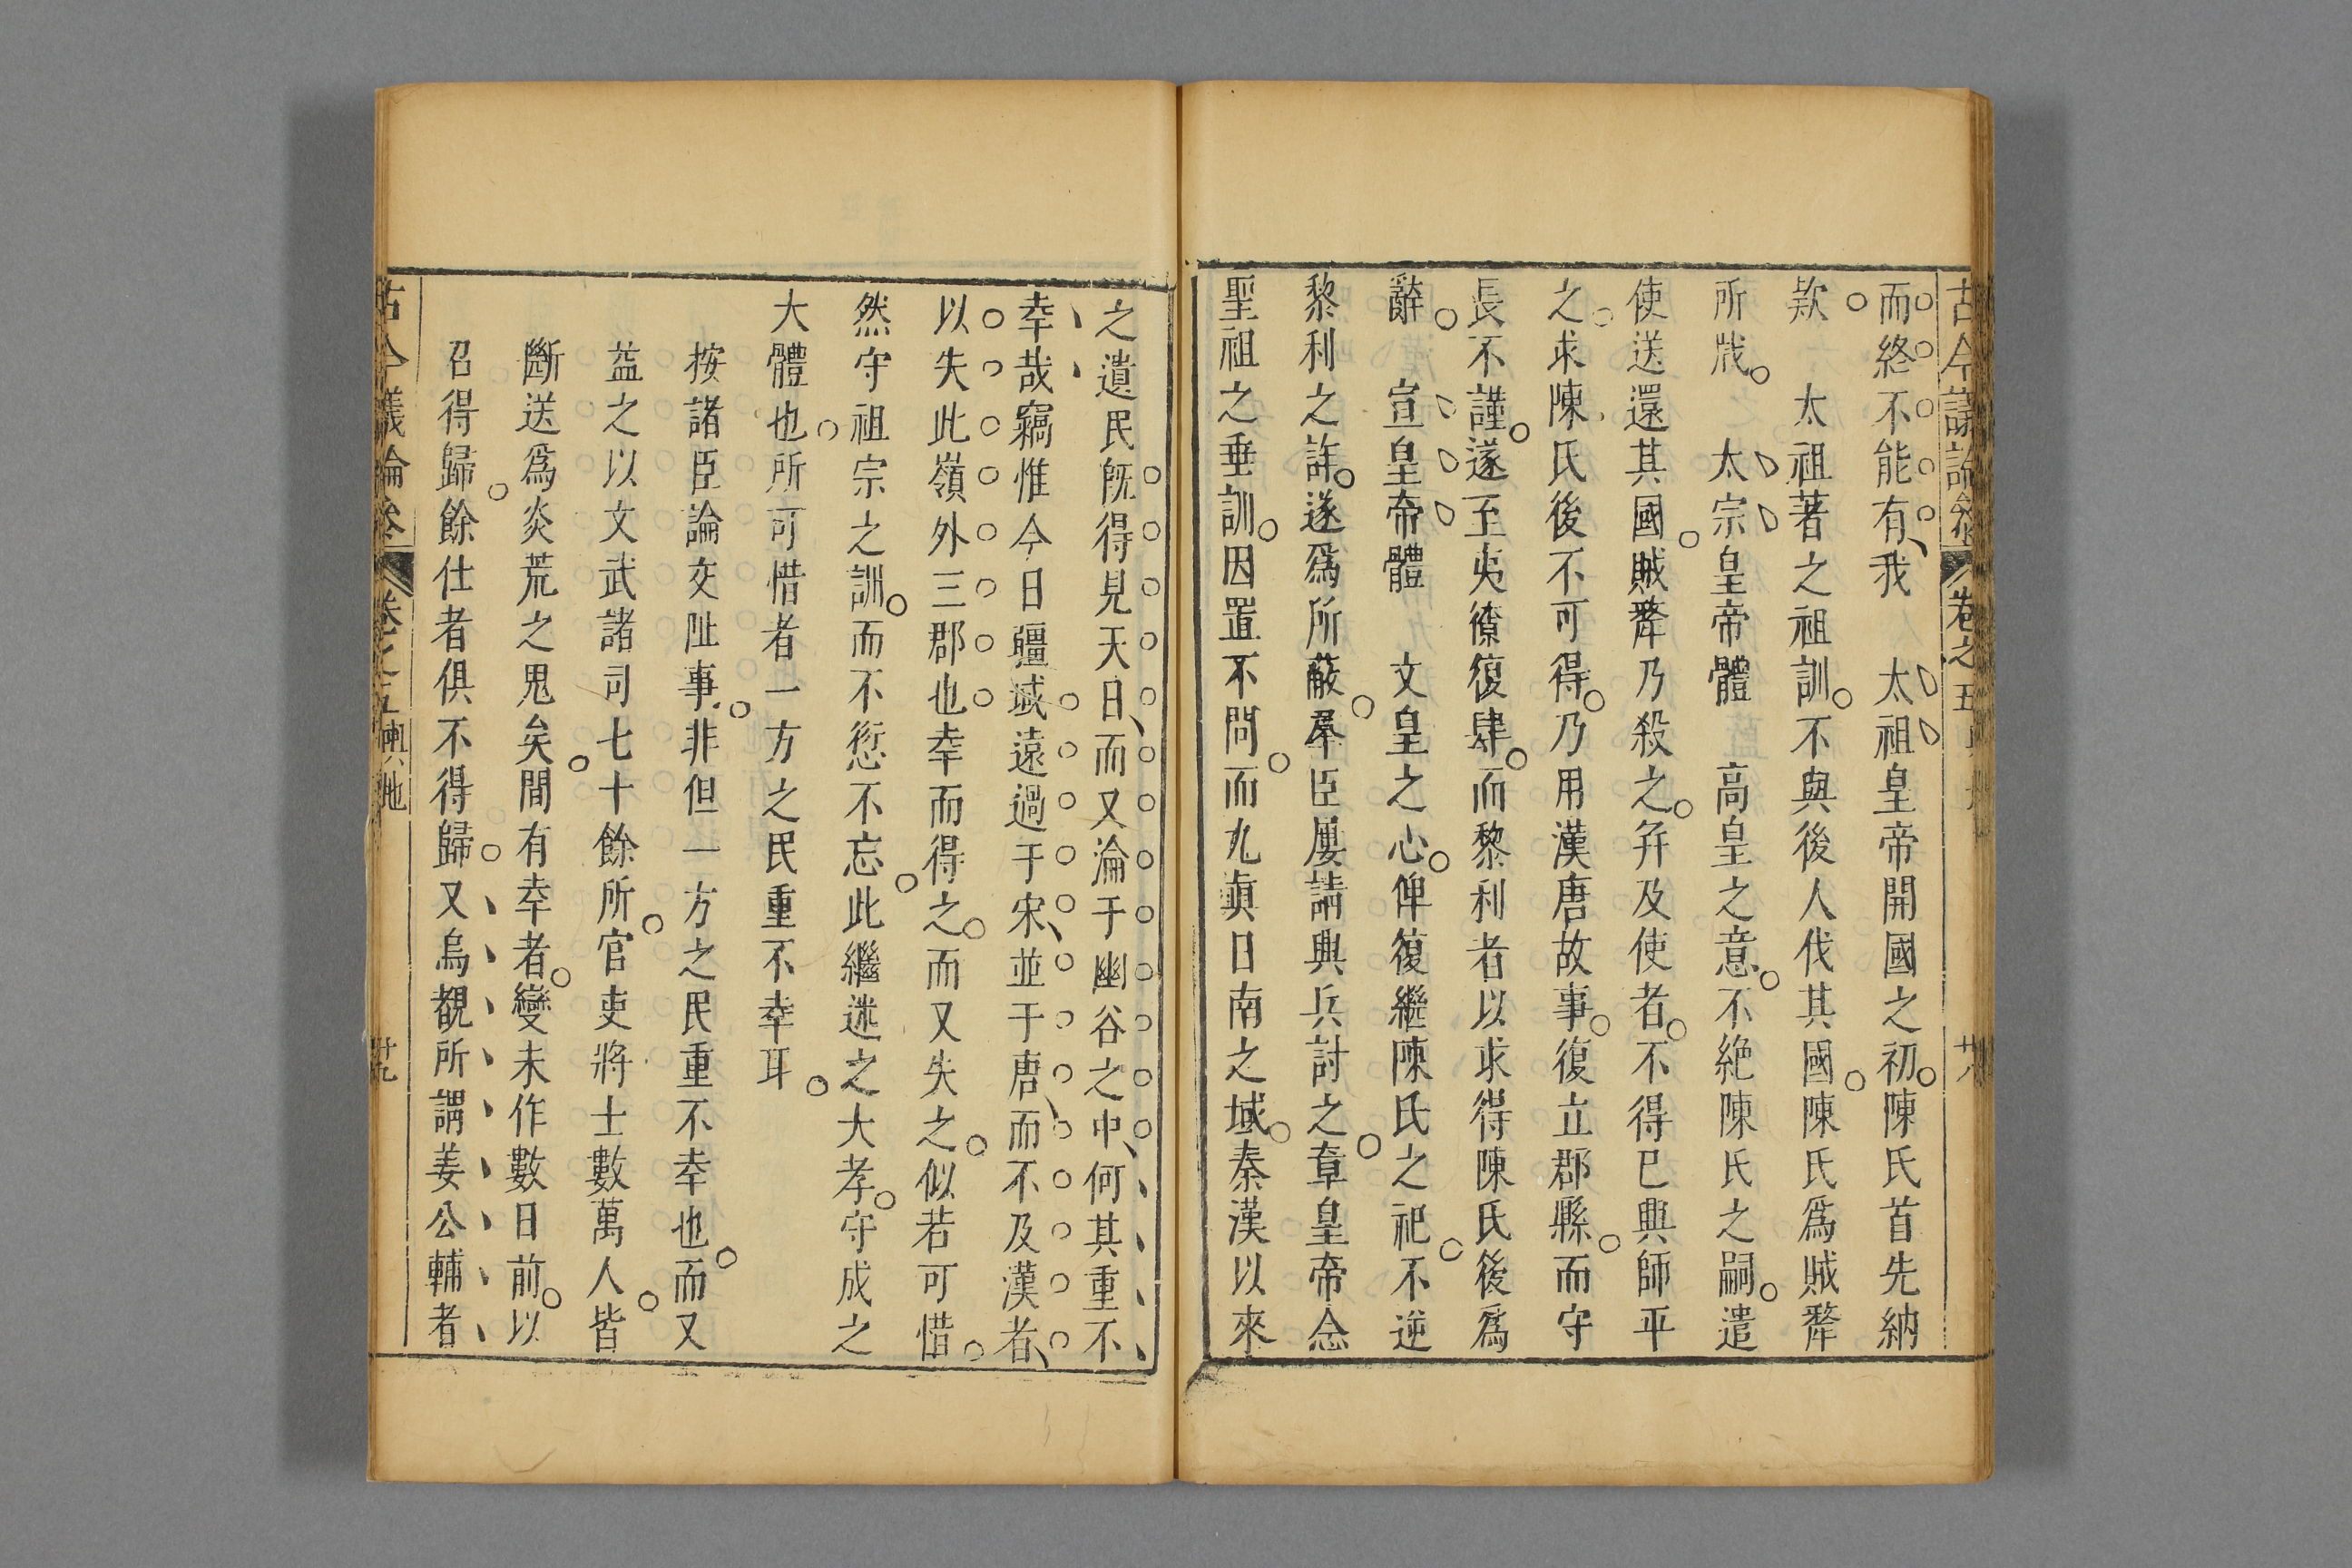 古今議論參 卷之五 廿八
而終不能有我 太祖皇帝開國之初陳氏首先納
欵 太祖著之祖訓不與後人伐其國陳氏爲賊犛
所戕 太宗皇帝體 高皇之意不絶陳氏之嗣遣
使送還其國賊犛乃殺之并及使者不得已興師平
之求陳氏後不可得乃用漢唐故事復立郡縣而守
長不謹遂至夷獠復肆而黎利者以求得陳氏後爲
辭 宣皇帝體 文皇之心俾復繼陳氏之祀不逆
黎利之詐遂爲所蔽羣臣屢請興兵討之章皇帝念
聖祖之垂訓因置不問而九眞日南之域秦漢以來
之遺民旣得見天日而又淪于幽谷之中何其重不
幸哉竊惟今日疆域遠過于宋並于唐而不及漢者
以失此嶺外三郡也幸而得之而又失之似若可惜
然守祖宗之訓而不愆不忘此繼述之大孝守成之
大體也所可惜者一方之民重不幸耳
按諸臣論交阯事非但一方之民重不幸也而又
益之以文武諸司七十餘所官吏將士數萬人皆
斷送爲炎荒之鬼矣間有幸者變未作數日前以
召得歸餘仕者俱不得歸又烏覩所謂姜公輔者
古今議論參 卷之五輿地 廿九